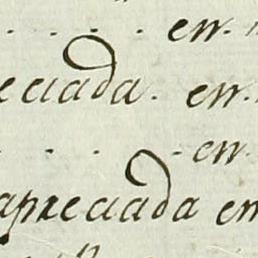 . . . . en.
eciada. en.
. . . en
apreciada en